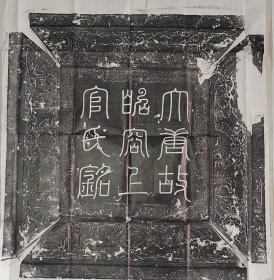 大唐故
昭容上
官氏銘